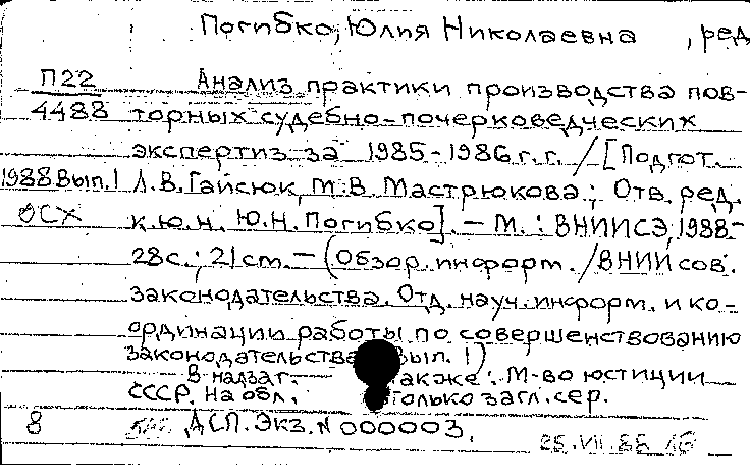 Погибко, Юлия Николаевна , ред
П22 Анализ практики производства пов-
4488 торных судебно-почерковедческих
экспертиз за 1985-1986 г.г. / [Подгот.
1988 Вып.1 Л.В. Гайсюк, М.В. Мастрюкова ; Отв. ред.
ОСХ к.ю.н. Ю.Н. Погибко]. - М. : ВНИИСЭ, 1988-
28с. ; 21 см. - (Обзор. информ. / ВНИИ сов.
законодательства. Отд. науч. информ. и ко-
ординации работы по совершенствованию
законодательства Вып. 1)
В надзаг. также: М-во юстиции
СССР. На обл. только загл. сер.
8 ДСП. Экз. N 000003.